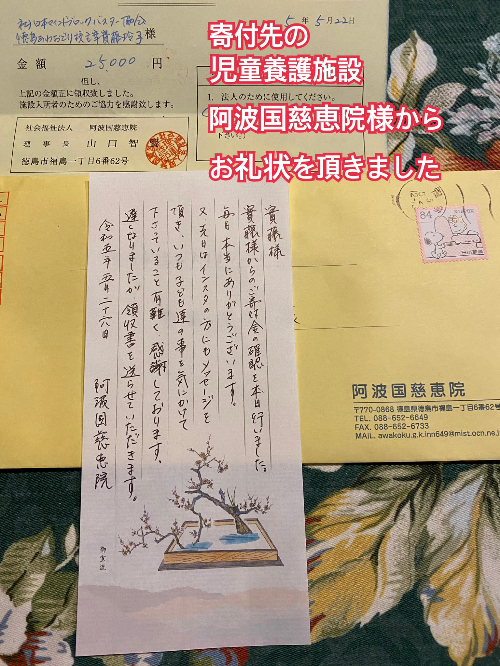 寄付先の
児童養護施設
阿波国慈恵院様から
お礼状を頂きました
5年5月22日
様
金額 25,000 円
但し、
上記の金額正に領収致しました。
施設入所者のためのご協力を感謝致します。
社会福祉法人 阿波国慈恵院
理事長 山口智
徳島市福島一丁目6番62号
1. 法人のために使用してください。
齋藤様
齋藤様からのご寄付金の確認を本日行いました。
毎日本当にありがとうございます。
又、先日はインスタの方にもメッセージを
頂き、いつも子ども達の事を気にかけて
下さっていること有難く感謝しております。
遅くなりましたが領収書を送らせていただきます。
令和五年五月二十六日
阿波国慈恵院
84
阿波国慈恵院
〒770-0868 徳島県徳島市福島一丁目6番62号
TEL. 088-652-6649
FAX. 088-652-6733
MAIL. awakoku.g.k.inn649@mist.ocn.ne.jp